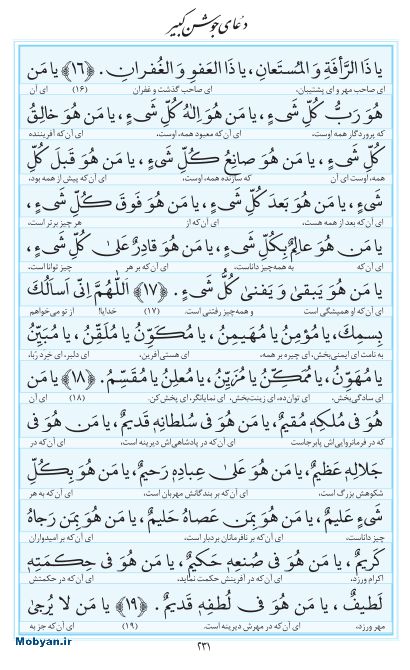 دعای جوشن کبیر
یا ذَا الرَّأفَةِ وَ المُستَعانِ، یا ذَا العَفوِ وَ الغُفرانِ. ﴿١٦﴾ یا مَن
ای صاحب مهر و ای پشتیبان، ای صاحب گذشت و غفران (۱۶) ای آن
هُوَ رَبُّ کُلِّ شَیءٍ، یا مَن هُوَ اِلهُ کُلِّ شَیءٍ، یا مَن هُوَ خالِقُ
که پروردگار همه اوست، ای آن‌که معبود همه، اوست، ای آن‌که آفریننده
کُلِّ شَیءٍ، یا مَن هُوَ صانِعُ کُلِّ شَیءٍ، یا مَن هُوَ قَبلَ کُلِّ
همه، اوست ای آن که سازنده همه، اوست، ای آن‌که پیش از همه بود،
شَیءٍ، یا مَن هُوَ بَعدَ کُلِّ شَیءٍ، یا مَن هُوَ فَوقَ کُلِّ شَیءٍ،
ای آن‌که بعد از همه هست، ای آن‌که از هر چیز برتر است،
یا مَن هُوَ عالِمٌ بِکُلِّ شَیءٍ، یا مَن هُوَ قادِرٌ عَلیٰ کُلِّ شَیءٍ،
ای آن‌که به همه‌چیز داناست، ای آن‌که بر هر چیز توانا است،
یا مَن هُوَ یَبقیٰ وَ یَفنیٰ کُلُّ شَیءٍ. ﴿١٧﴾ اَللّٰهُمَّ اِنّی اَسأَلُکَ
ای آن‌که او همیشگی است و همه‌چیز رفتنی است. (۱۷) خدایا! از تو می‌خواهم
بِسمِکَ، یا مُؤمِنُ یا مُهَیمِنُ، یا مُکَوِّنُ یا مُلَقِّنُ، یا مُبَیِّنُ
به نامت ای ایمنی‌بخش، ای چیره بر همه، ای هستی‌آفرین، ای دلبر، ای خِرَد رُبا،
یا مُهَوِّنُ، یا مُمَکِّنُ یا مُزَیِّنُ، یا مُعلِنُ یا مُقَسِّمُ. ﴿١٨﴾ یا مَن
ای سادگی‌بخش، ای توان‌ده، ای زینت‌بخش، ای نمایانگر، ای پخش‌کن. (۱۸) ای آن
هُوَ فی مُلکِهِ مُقیمٌ، یا مَن هُوَ فی سُلطانِهِ قَدیمٌ، یا مَن هُوَ فی
که در فرمانروایی‌اش پابرجاست ای آن‌که در پادشاهی‌اش دیرینه است، ای آن‌که در
جَلالِهِ عَظیمٌ، یا مَن هُوَ عَلیٰ عِبادِهِ رَحیمٌ، یا مَن هُوَ بِکُلِّ
شکوهش بزرگ است، ای آن‌که بر بندگانش مهربان است، ای آن‌که به هر
شَیءٍ عَلیمٌ، یا مَن هُوَ بِمَن عَصاهُ حَلیمٌ، یا مَن هُوَ بِمَن رَجاهُ
چیز داناست، ای آن‌که بر نافرمانان بردبار است، ای آن‌که بر امیدواران
کَریمٌ، یا مَن هُوَ فی صُنعِهِ حَکیمٌ، یا مَن هُوَ فی حِکمَتِهِ
اکرام ورزد، ای آن‌که در آفرینش حکمت نماید، ای آن‌که در حکمتش
لَطیفٌ، یا مَن هُوَ فی لُطفِهِ قَدیمٌ. ﴿١٩﴾ یا مَن لا یُرجیٰ
مهر ورزد، ای آن‌که در مهرش دیرینه است. (۱۹) ای آن‌که جز به
۲۳۱
Mobyan.ir